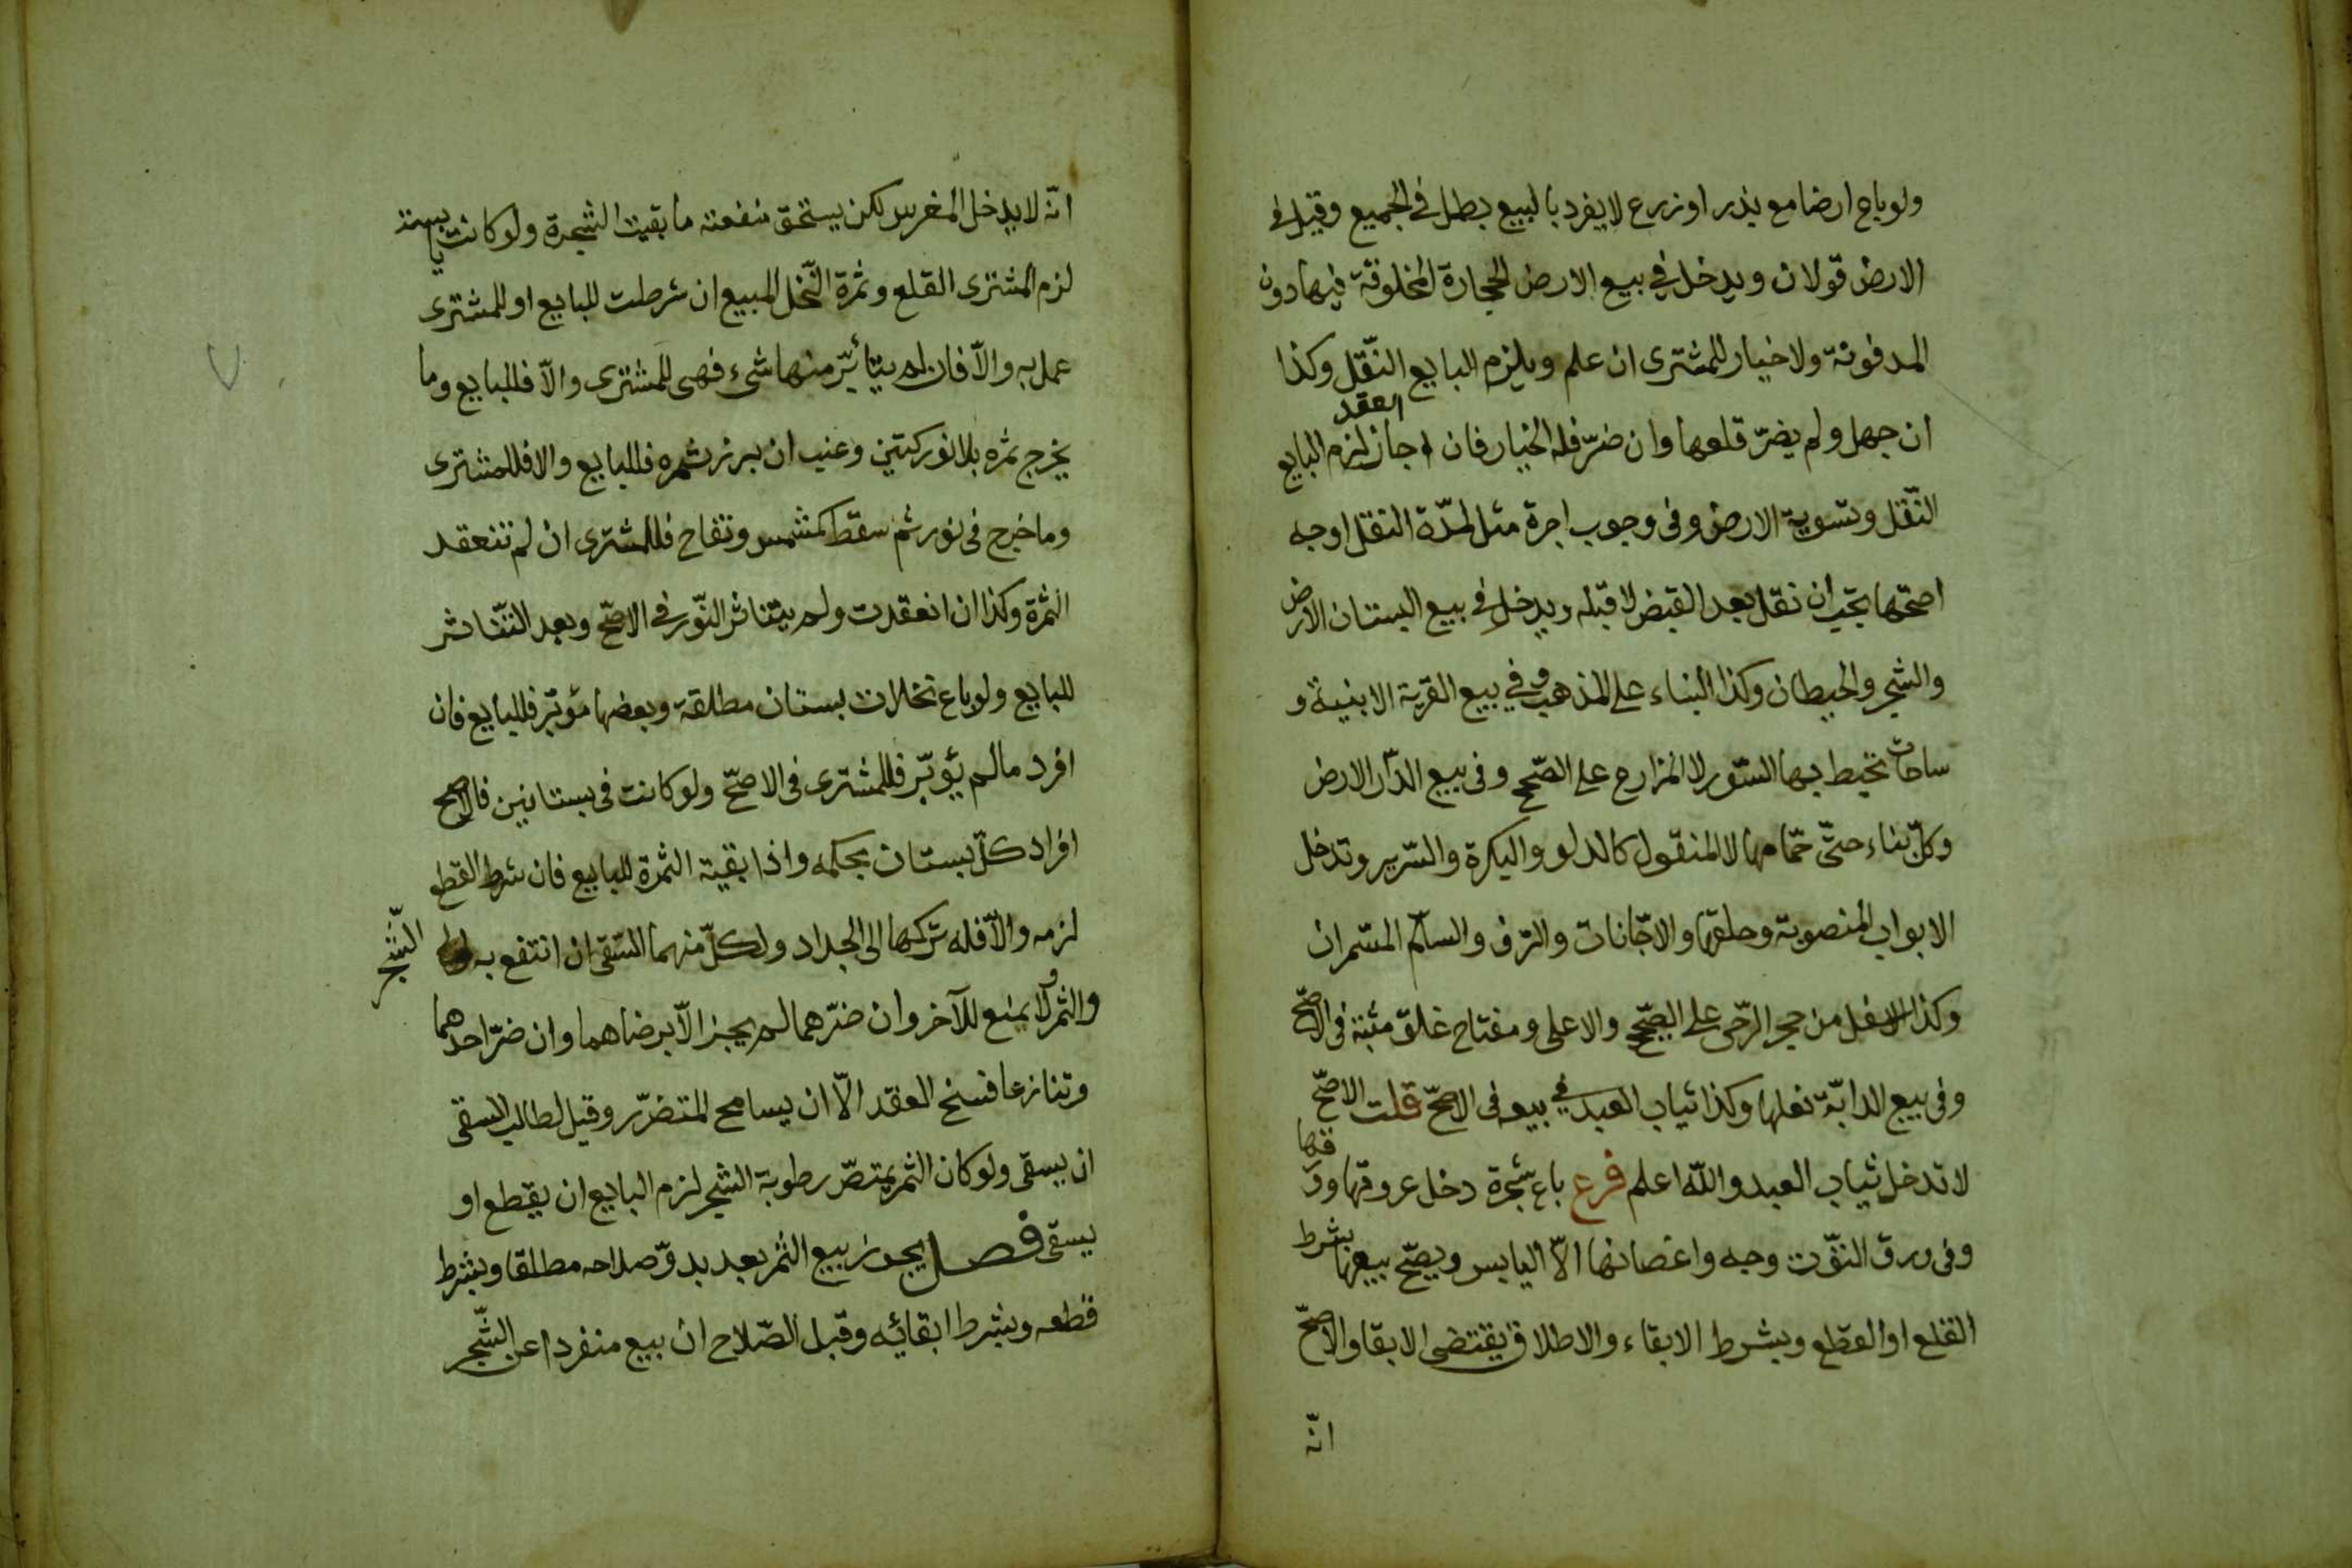 ولو باع ارضا مع بذر او زرع لا يفرد بالبيع بطل في الجميع وقيل في
الارض قولان ويدخل في بيع الارض الحجارة المخلوقة فيها دون
المدفونة ولا خيار للمشترى ان علم ويلزم البايع النّقل وكذا
ان جهل ولم يضرّ قلعها وان ضرّ فله الخيار فان اجاز العقد لزم البايع
النّقل وتسوية الارض وفى وجوب اجرة مثل لمدّة النقل اوجه
اصحّها تجب ان نقل بعد القبض لا قبله ويدخل في بيع البستان الارض
والشجر والحيطان وكذا البناء على المذهب وفي بيع القرية الابنية و
ساحات تحيط بها السّور لا المزارع على الصّحيح وفى بيع الدّار الارض
وكلّ بناء حتّى حمّامها لا المنقول كالدلو والبكرة والسّرير وتدخل
الابواب المنصوبة وحلقها والاجّانات والرّف والسلّم المسّمران
وكذا الاسفل من حجر الرّحى على الصّحيح والاعلى ومفتاح غلق مثبة فى الاصحّ
وفى بيع الدابّة نعلها وكذا ثياب العبد في بيعه فى الاصحّ قلت الاصحّ
لا تدخل ثياب العبد والله اعلم فرع باع شجرة دخل عروقها وورقها
وفى ورق التوّت وجه واغصانها الّا اليابس ويصحّ بيعها بشرط
القلع او القطع وبشرط الابقاء والاطلاق يقتضى الابقا والاصحّ
انّه
انّه لا يدخل المغرس لكن يستحق منفعته ما بقيت الشجرة ولو كانت يابسة
لزم المشترى القلع وثمرة النّخل المبيع ان شرطت للبايع او للمشترى
عمل به والّا فان لم يتأبّر منها شىء فهى للمشترى والّا فللبايع وما
يخرج ثمره بلا نور كتين وعنب ان برز ثمره فللبايع والا فللمشترى
وما خرج فى نور ثم سقط كمشمس وتفاح فللمشترى ان لم تنعقد
الثمرة وكذا ان انعقدت ولم يتناثر النّور في الاصحّ وبعد التّناثر
للبايع ولو باع نخلات بستان مطلقة وبعضها مؤبّر فللبايع فان
افرد مالم يؤبّر فللمشترى فى الاصحّ ولو كانت فى بستانين فالاصح
افراد كلّ بستان بحكمه واذا بقية الثمرة للبايع فان شرط القطع
لزمه والّا فله تركها الى الجداد ولكلّ منهما السّقى ان انتفع به الشّجر
والثمر ولا يمنع للآخر وان ضرّهما لم يجز الّا برضاهما وان ضرّ احدهما
وتنازعا فسخ العقد الّا ان يسامح المتضرّر وقيل لطالب السقى
ان يسقى ولو كان الثمر يمتصّ رطوبة الشجر لزم البايع ان يقطع او
يسقى فصل يجوز بيع الثمر بعد بدوّ صلاحه مطلقا وبشرط
قطعه وبشرط ابقائه وقبل الصّلاح ان بيع منفردا عن الشّجر